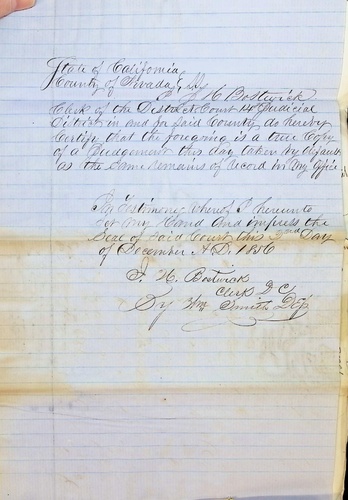 State of California
County of Nevada } ss
I, J. H. Bostwick
Clerk of the District Court 14 Judicial
District in and for Said County do hereby
Certify that the foregoing is a true Copy
of a Judgement this day taken by default
as the Same Remains of Record in my Office
In Testimony whereof I hereunto
set my hand and impress the
Seal of Said Court this 2nd day
of December A.D. 1856
J. H. Bostwick
Clerk D C
By Wm Smith Dep